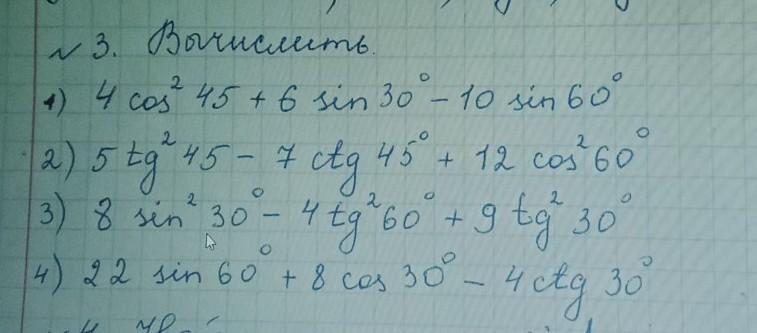 № 3. Вычислить.
1) 4 cos² 45 + 6 sin 30° - 10 sin 60°
2) 5 tg² 45 - 7 ctg 45° + 12 cos² 60°
3) 8 sin² 30° - 4 tg² 60° + 9 tg² 30°
4) 22 sin 60° + 8 cos 30° - 4 ctg 30°